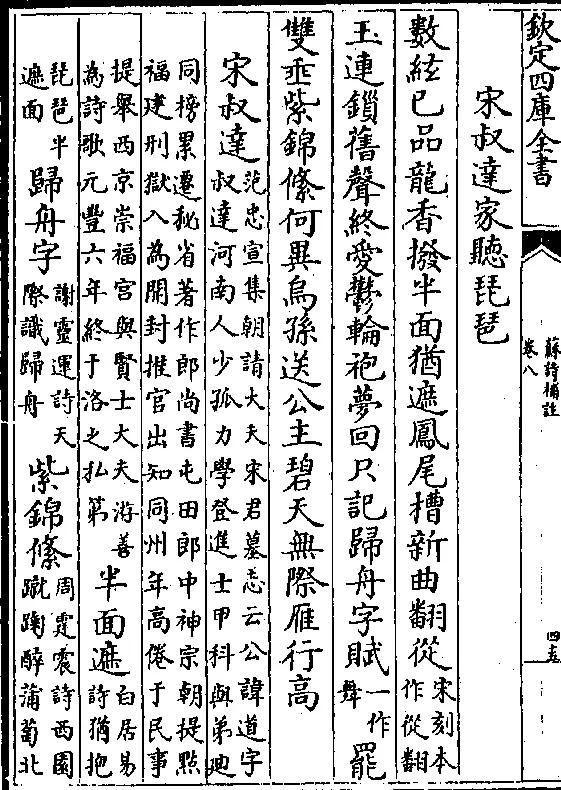 欽定四庫全書
蘇詩補註
卷八
四五
宋叔達家聽琵琶
數絃已品龍香撥半面猶遮鳳尾槽新曲翻從宋刻本作從翻
玉連鎖舊聲終愛鬱輪袍夢回只記歸舟字賦一作舞罷
雙垂紫錦絛何異烏孫送公主碧天無際雁行高
宋叔達范忠宣集朝請大夫宋君墓志云公諱道字叔達河南人少孤力學登進士甲科與弟迪
同榜累遷秘省著作郎尚書屯田郎中神宗朝提㸃福建刑獄入為開封推官出知同州年高倦于民事
提舉西京崇福宮與賢士大夫游善為詩歌元豐六年終于洛之私第半面遮白居易詩猶抱
琵琶半遮面歸舟字謝靈運詩天際識歸舟紫錦絛周霆震詩西園蹴踘醉蒲萄北